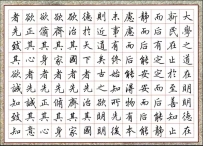 大學之道在明明德在
新民在止於至善知止
而后有定定而后能靜
靜而后能安安而后能
慮慮而后能得物有本
末事有終始知所先後
則近道矣古之欲明明
德於天下者先治其國
欲治其國者先齊其家
欲齊其家者先脩其身
欲脩其身者先正其心
欲正其心者先誠其意